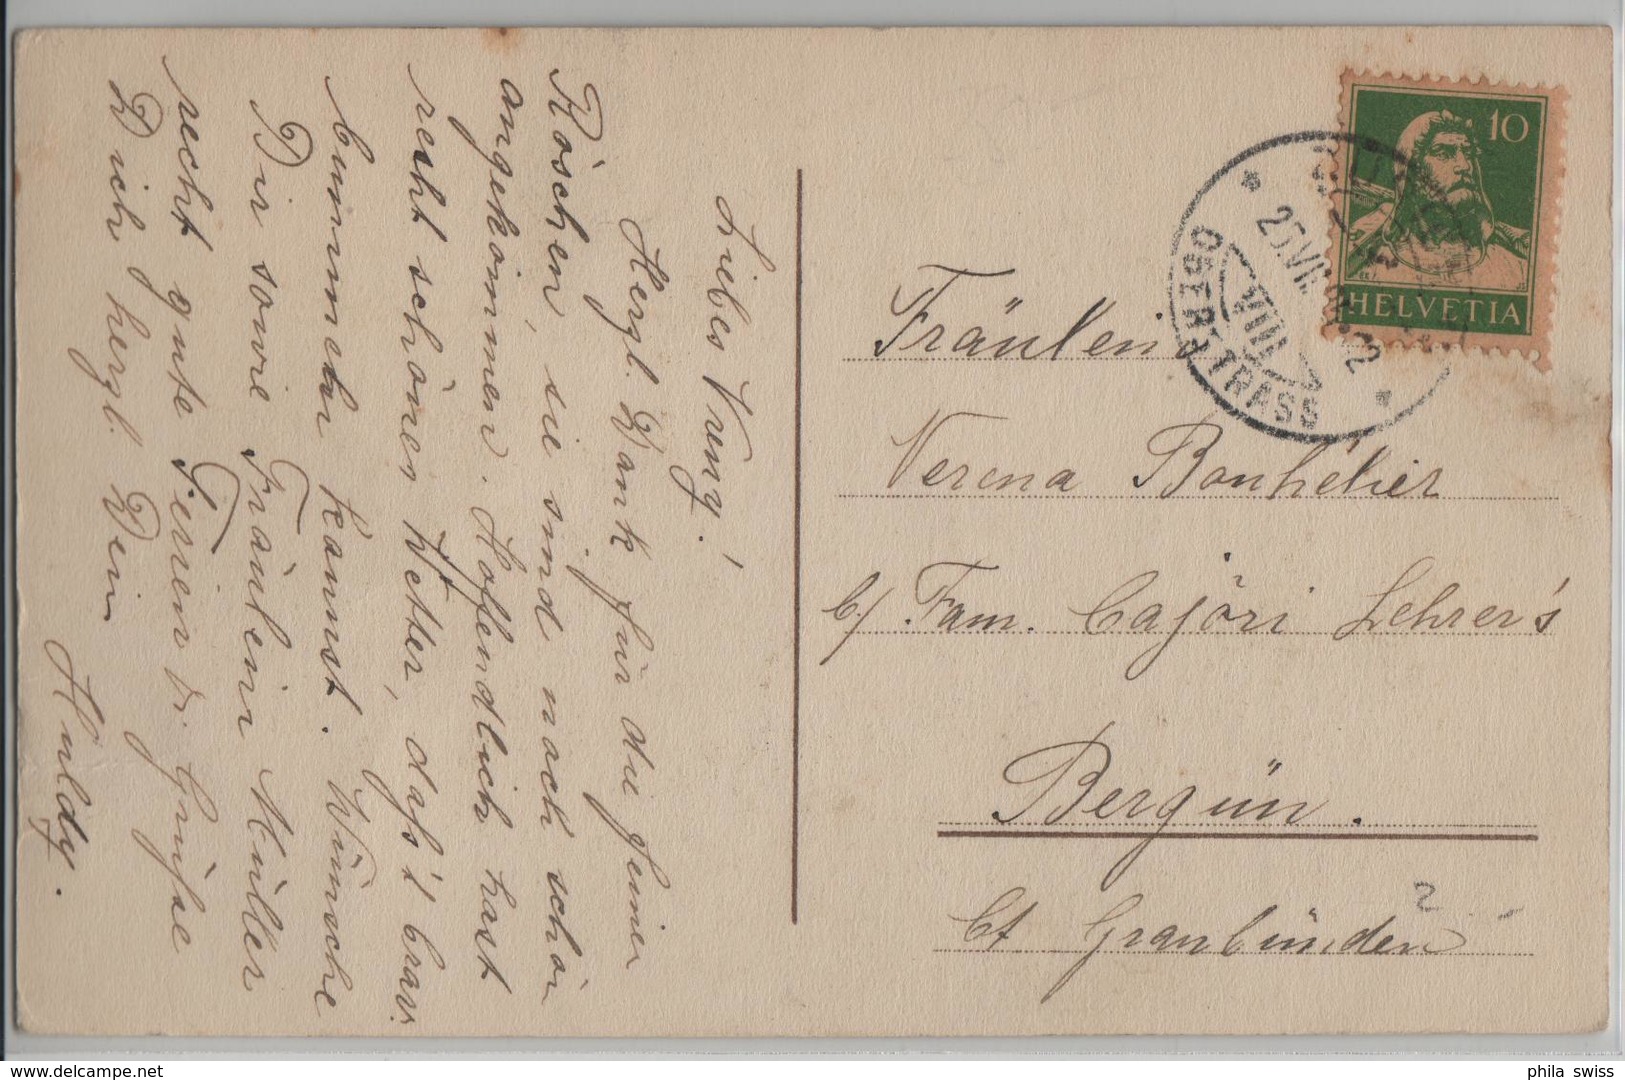 Liebes Vreny!
Herzl. Dank für die feinen
Röschen, sie sind noch schön
angekommen. Hoffendlich hast
recht schönes Wetter, dass't brav
bummeln kannst. Wünsche
Dir sowie Fräulein Müller
recht gute Ferien &. Grüsse
Dich herzl. Dein
Huldy.
10
HELVETIA
VIII
OBERSTRASS
Fräulein
Verena Bonhélier
b/ Fam. Cajöri Lehrer's
Bergün.
Ct Graubünden
delcampe.net
phila_swiss